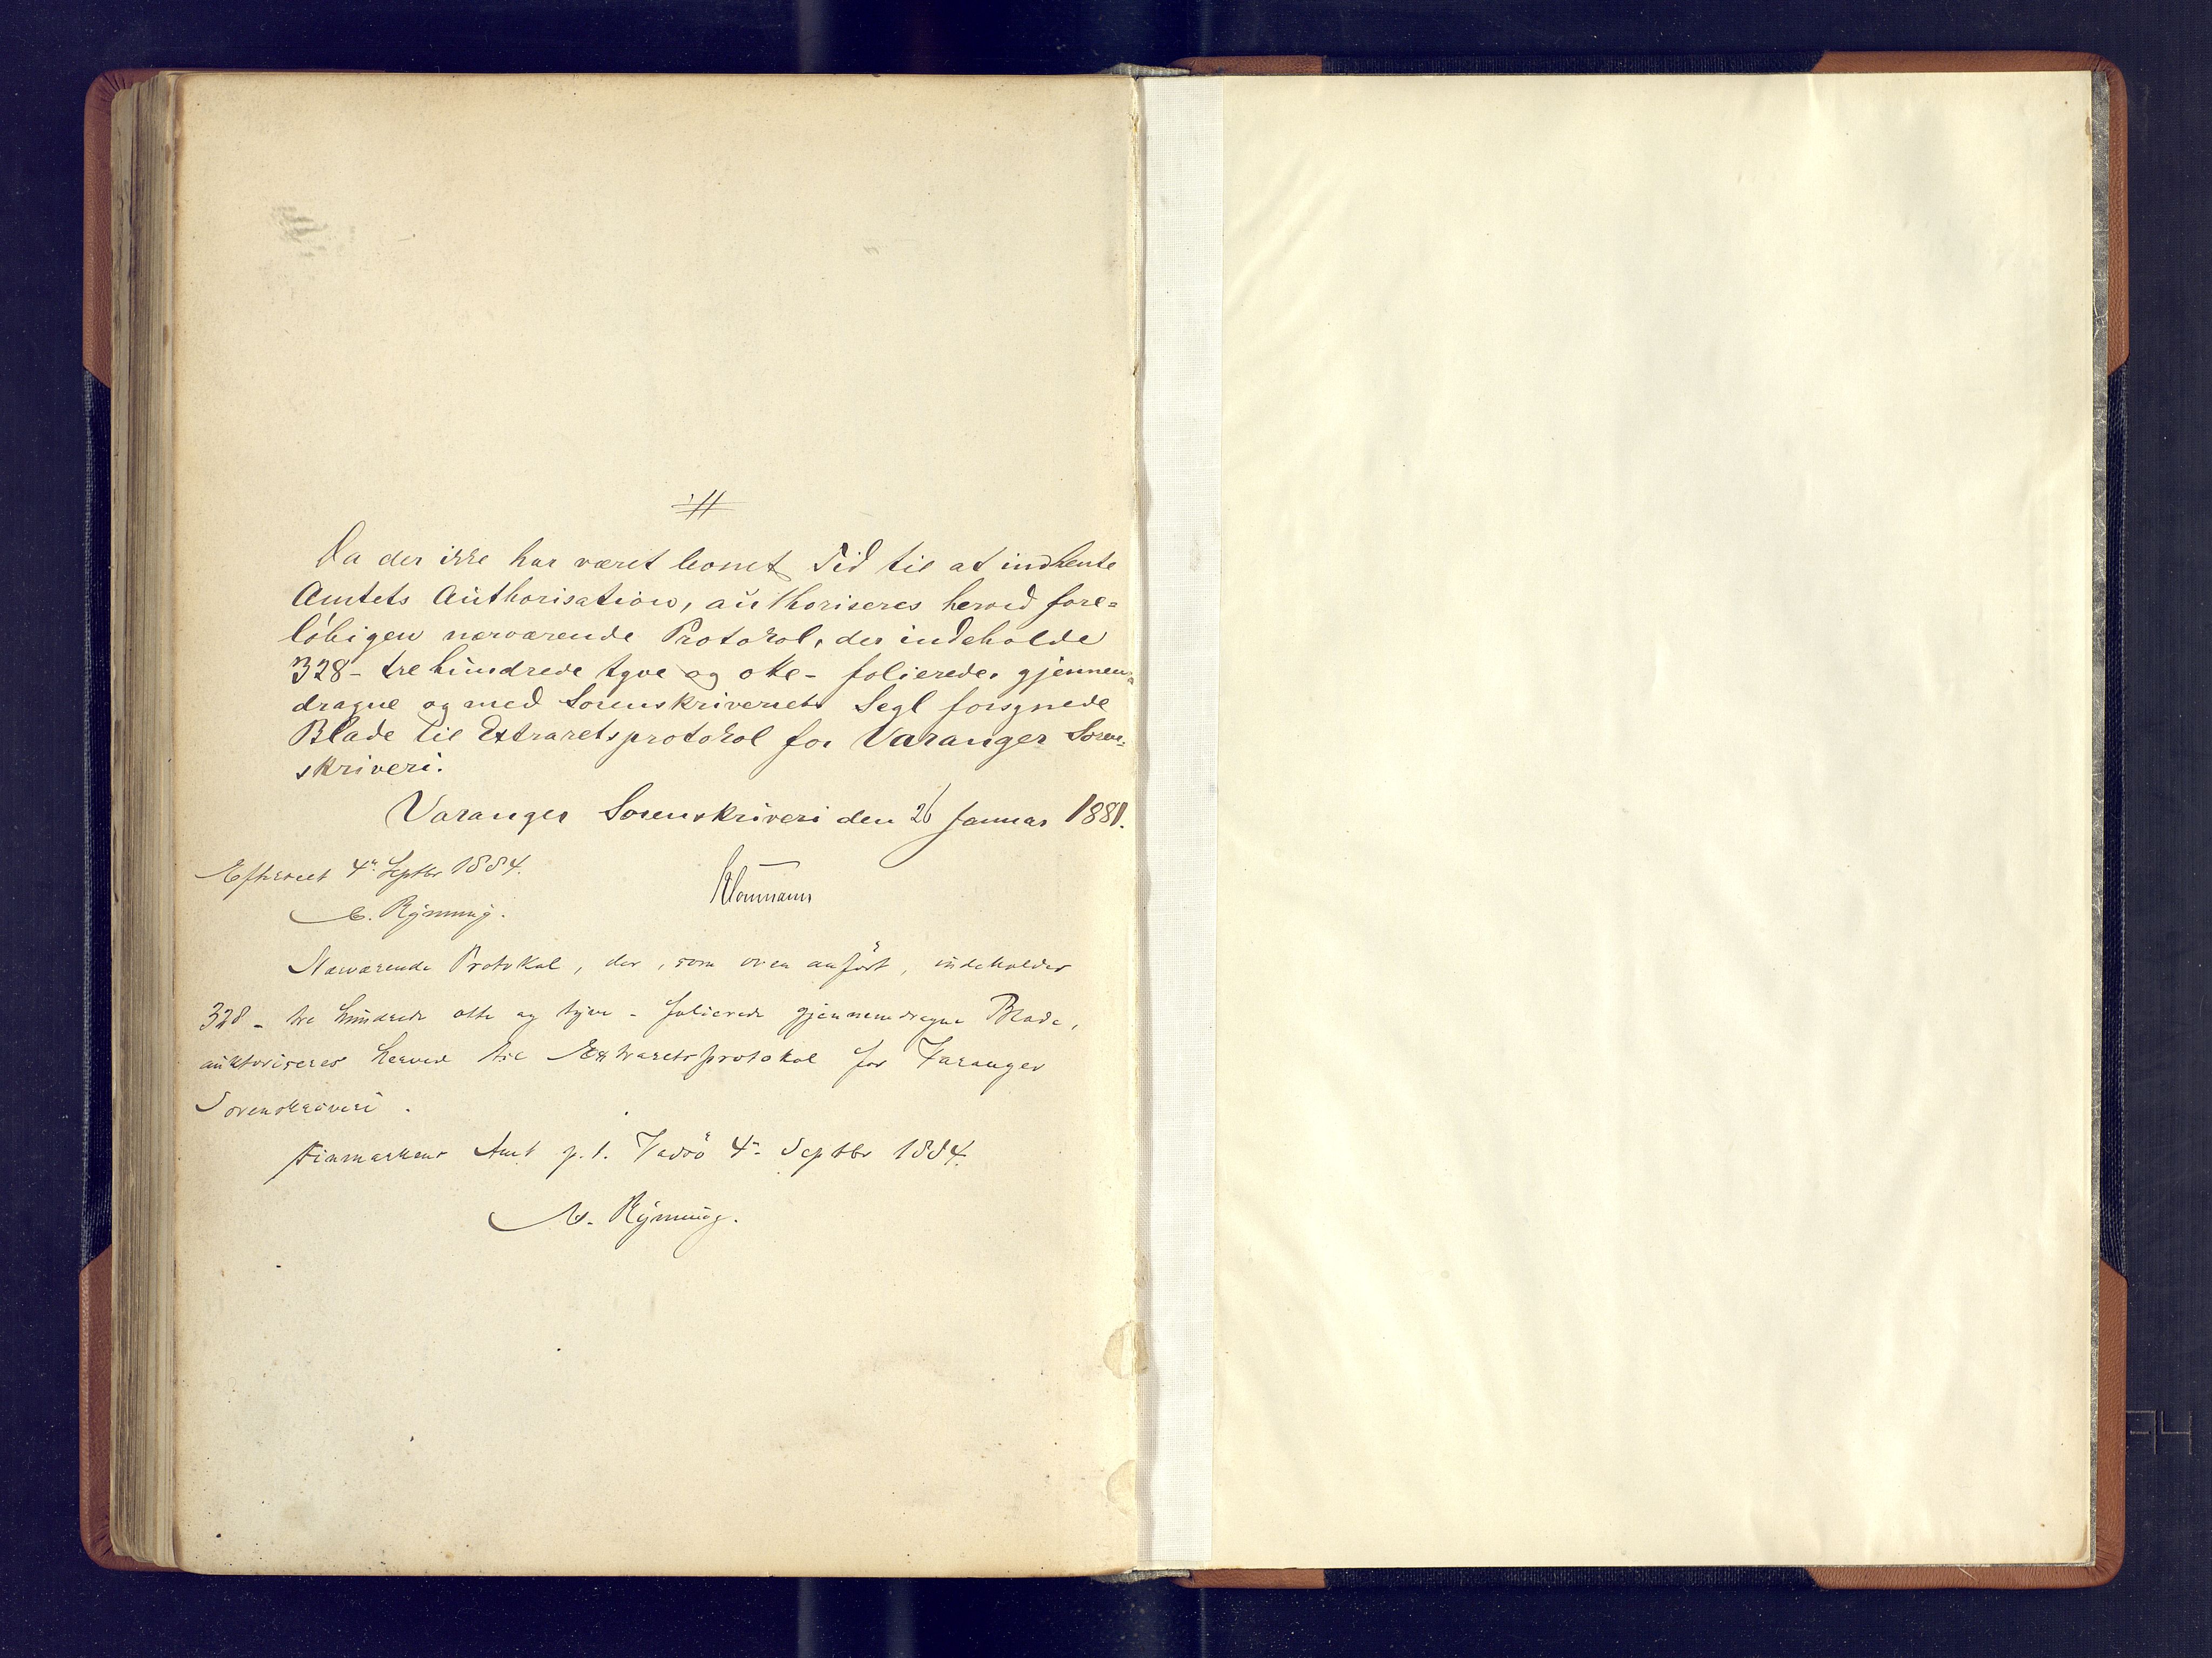 Da der ikke har været levnet Tid til at indhente
Amtets Authorisation, authoriseres herved fore=
løbigen nærværende Protokol, der indeholde
328 - tre hundrede tyve og otte - folierede, gjennem=
dragne og med Sorenskriveriets Segl forsynede
Blade til Extraretsprotokol for Varanger Soren=
skriveri.
Varanger Sorenskriveri den 26 Januar 1881.
Efterseet 4de Septbr 1884.
Klemmann
C. Rynning.
Nærværende Protokol, der, som oven anført, indeholder
328 - tre hundrede otte og tyve - folierede gjennemdragne Blade,
auktoriseres herved til Extraretsprotokol for Varanger
Sorenskriveri.
Finmarkens Amt p. t. Vadsö 4de Septbr 1884.
C. Rynning.